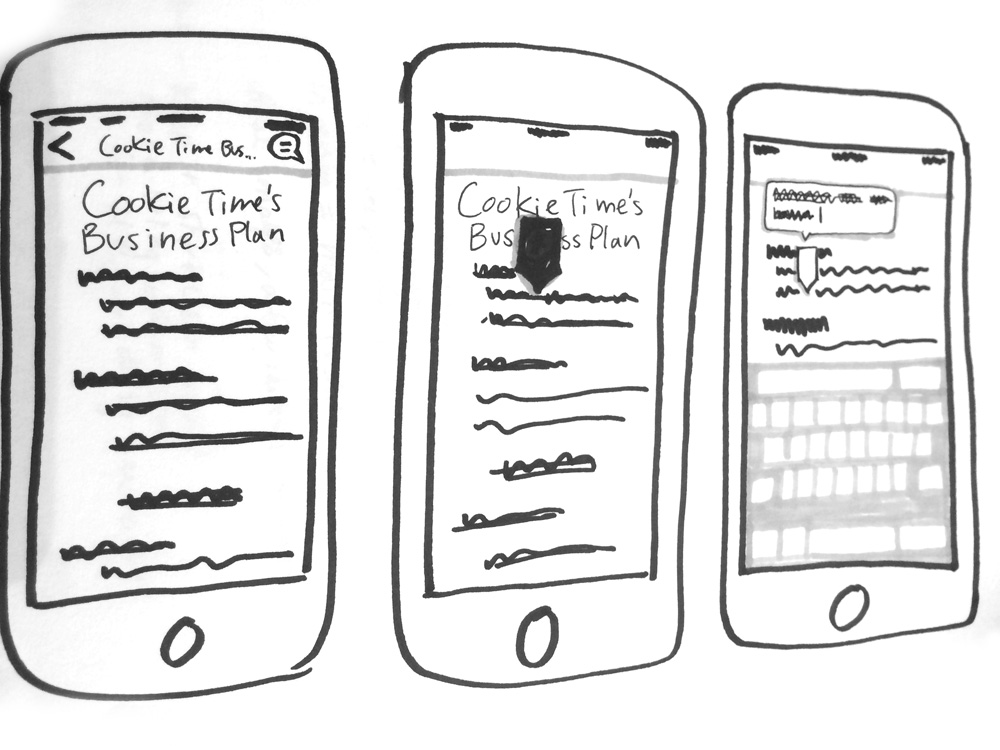 Cookie Time Bus...
Cookie Time's
Business Plan
Cookie Time's
Bus ss Plan